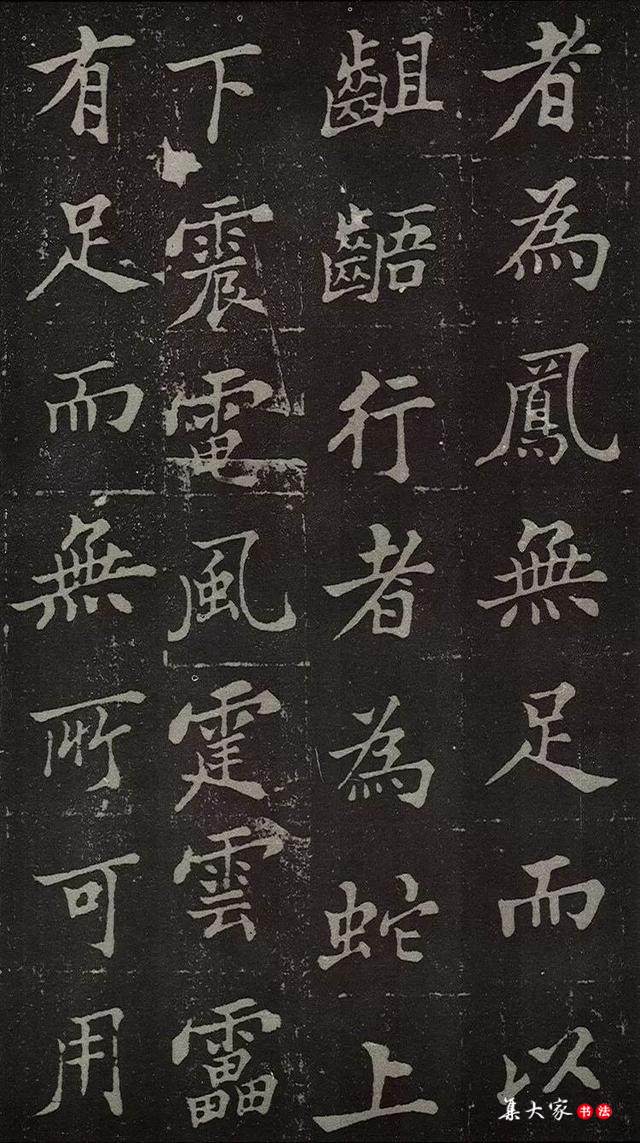 者為鳳無足而以
齟齬行者為蛇上
下震電風霆雲靁
有足而無所可用
集大家书法